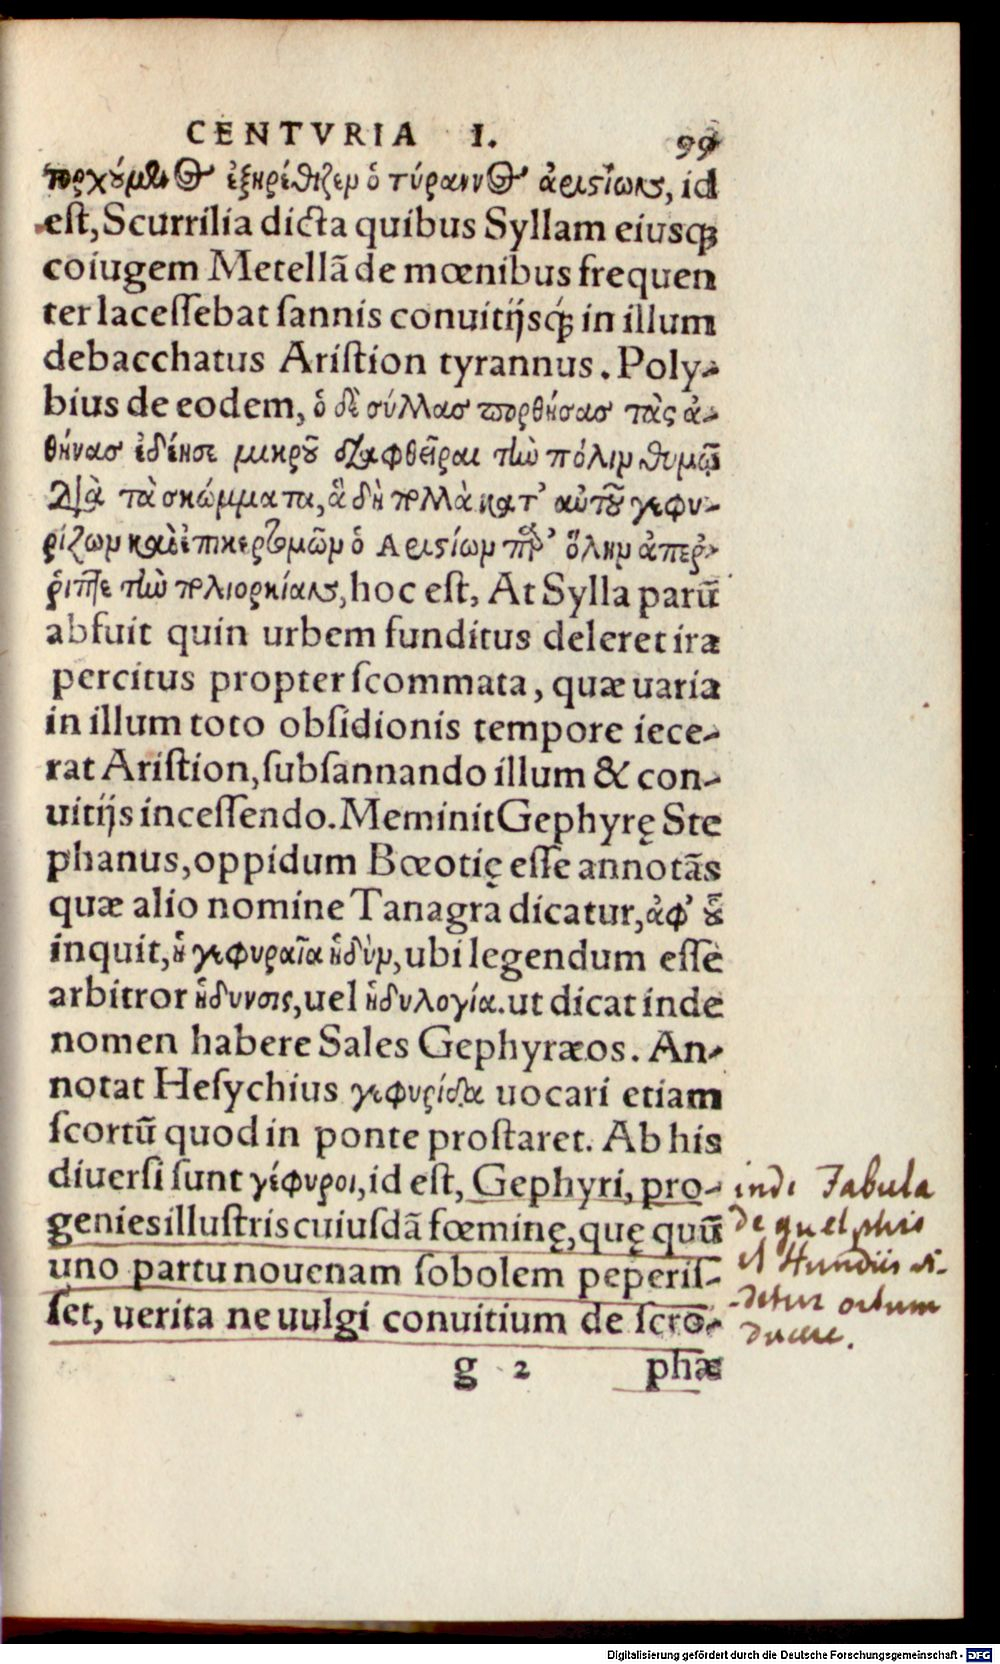 CENTVRIA I. 99
πορχούμενος ἐξηρέθιζεν ὁ τύραννος ἀριστίων, id
est, Scurrilia dicta quibus Syllam eiusq́;
coiugem Metellã de mœnibus frequen
ter lacessebat sannis conuitijsq́; in illum
debacchatus Aristion tyrannus. Poly-
bius de eodem, ὁ δὲ σύλλας πορθήσας τὰς ἀ-
θήνας ἐδέησε μικροῦ διαφθεῖραι τὴν πόλιν θυμῷ
διὰ τὰ σκώμματα, ἃ δὴ πολλὰ κατ' αὐτοῦ γεφυ-
ρίζων καὶ ἐπικερτομῶν ὁ Αριστίων παρ' ὅλην ἀπερ-
ῥιπτε τὴν πολιορκίαν, hoc est, At Sylla parũ
abfuit quin urbem funditus deleret ira
percitus propter scommata, quæ uaria
in illum toto obsidionis tempore iece-
rat Aristion, subsannando illum & con-
uitijs incessendo. Meminit Gephyrę Ste
phanus, oppidum Bœotię esse annotãs
quæ alio nomine Tanagra dicatur, ἀφ' οὗ
inquit, ἡ γεφυραῖα ἡδὺν, ubi legendum esse
arbitror ἥδυνσις, uel ἡδυλογία. ut dicat inde
nomen habere Sales Gephyræos. An-
notat Hesychius γεφυρίδα uocari etiam
scortũ quod in ponte prostaret. Ab his
diuersi sunt γέφυροι, id est, Gephyri, pro-
genies illustris cuiusdã fœminę, quę quũ
uno partu nouenam sobolem peperis-
set, uerita ne uulgi conuitium de scro-
g 2 phæ
inde Fabula
de guelphis
et Hundiis vi-
-detur ortum
ducere.
Digitalisierung gefördert durch die Deutsche Forschungsgemeinschaft - DFG